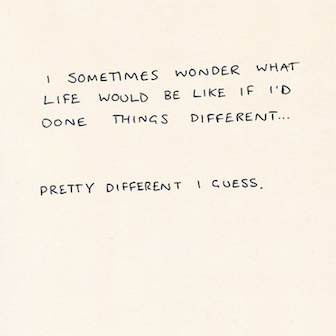 I SOMETIMES WONDER WHAT
LIFE WOULD BE LIKE IF I'D
DONE THINGS DIFFERENT...
PRETTY DIFFERENT I GUESS.